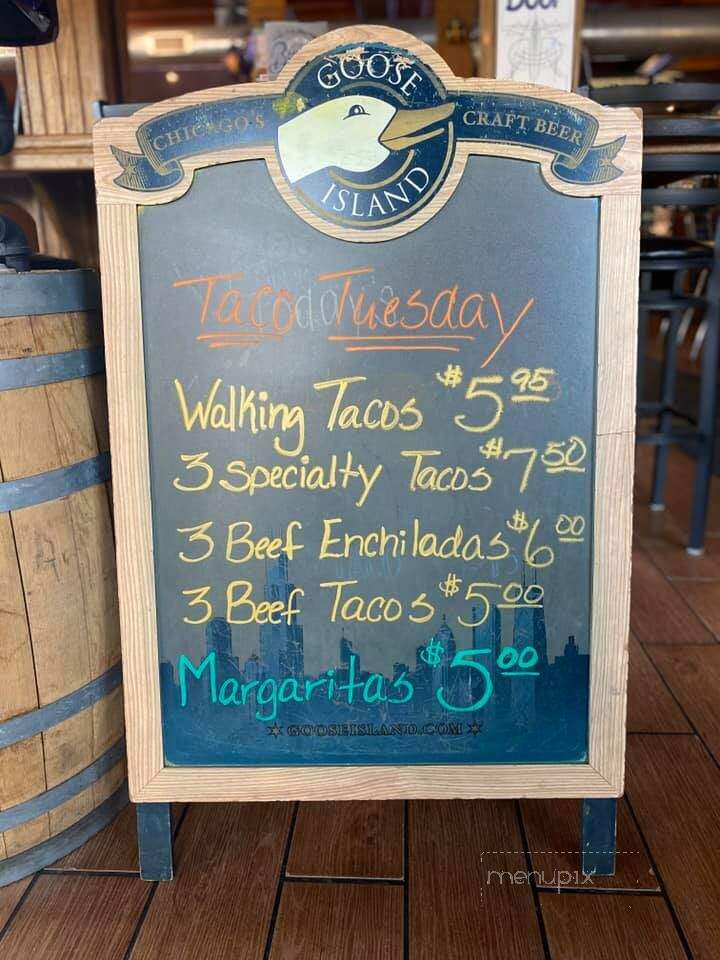 GOOSE
CHICAGO'S
CRAFT BEER
ISLAND
Taco Tuesday
Walking Tacos $5.95
3 Specialty Tacos $7.50
3 Beef Enchiladas $6.00
3 Beef Tacos $5.00
Margaritas $5.00
GOOSEISLAND.COM
menupix